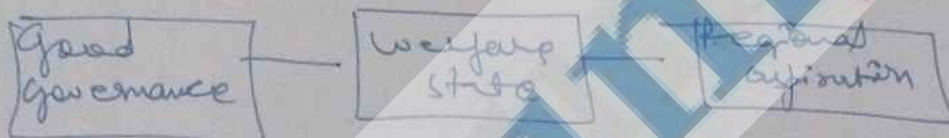 Good
Governance
welfare
state
Regional
aspiration